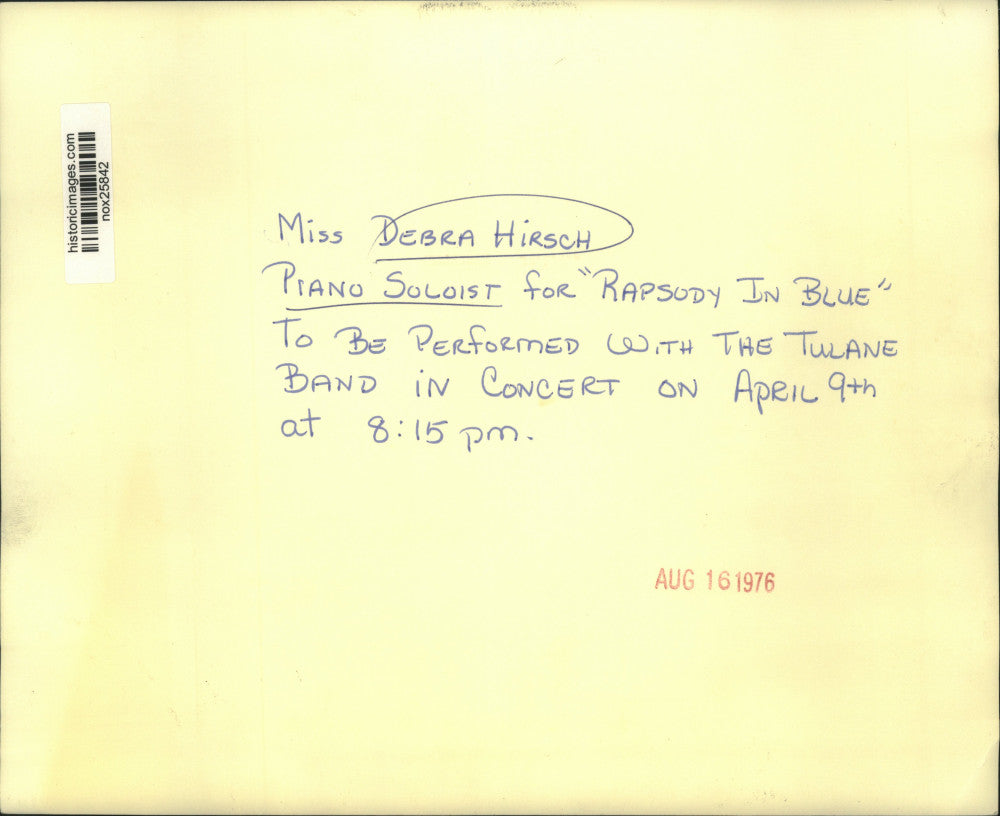 historicimages.com
nox25842
Miss DEBRA HIRSCH
PIANO SOLOIST for "RAPSODY IN BLUE"
TO BE PERFORMED WITH THE TULANE
BAND IN CONCERT ON APRIL 9th
at 8:15 pm.
AUG 16 1976